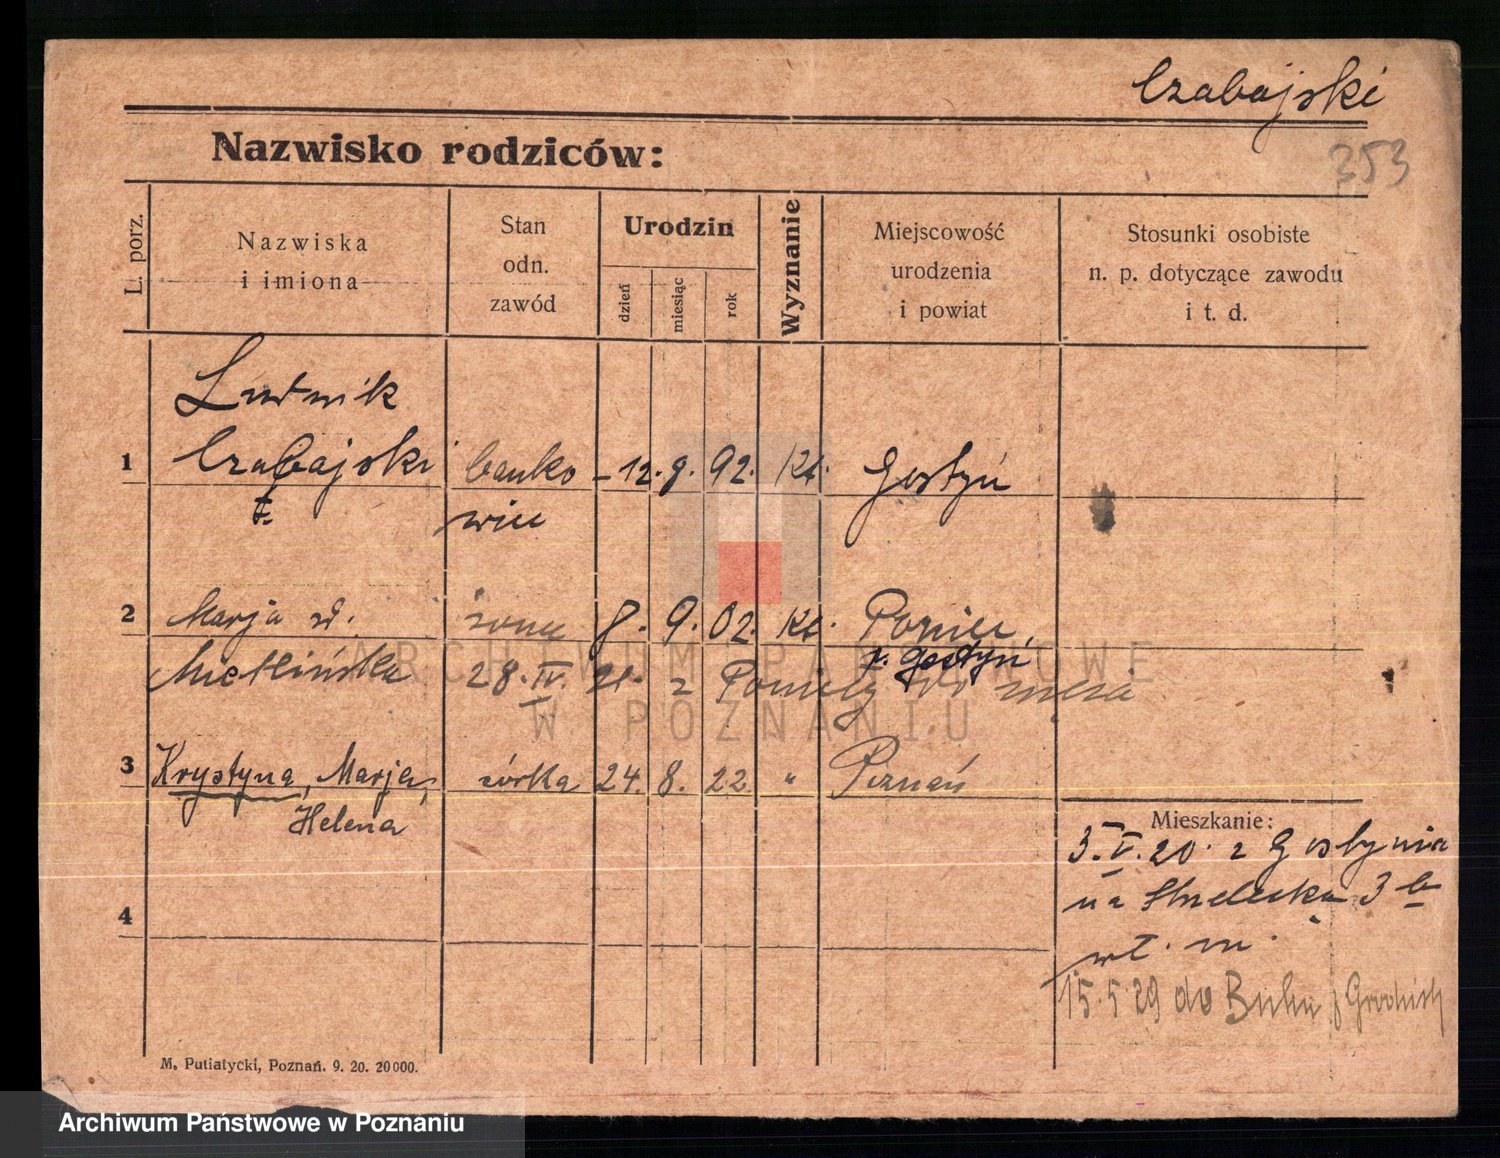 Czabajski
353
Nazwisko rodziców:
L. porz.
Nazwiska
i imiona
Stan
odn.
zawód
Urodzin
dzień
miesiąc
rok
Wyznanie
Miejscowość
urodzenia
i powiat
Stosunki osobiste
n. p. dotyczące zawodu
i t. d.
Ludwik
1 Czabajski banko – 12. 9. 92. Kt. Gostyń
wiec
2 Marja żona 8. 9. 02. Kt. Poniec,
p. Gostyń
28. IV. 21. z
3 Krystyna, Marja, córka 24. 8. 22. " Poznań
Helena
Mieszkanie:
3. V. 20. z Gostynia
na Strzelecka 3
4
15. 5 29 do Buku p Grodzisk
M. Putiatycki, Poznań. 9. 20. 20000.
ARCHIWUM PAŃSTWOWE
W POZNANIU
Archiwum Państwowe w Poznaniu